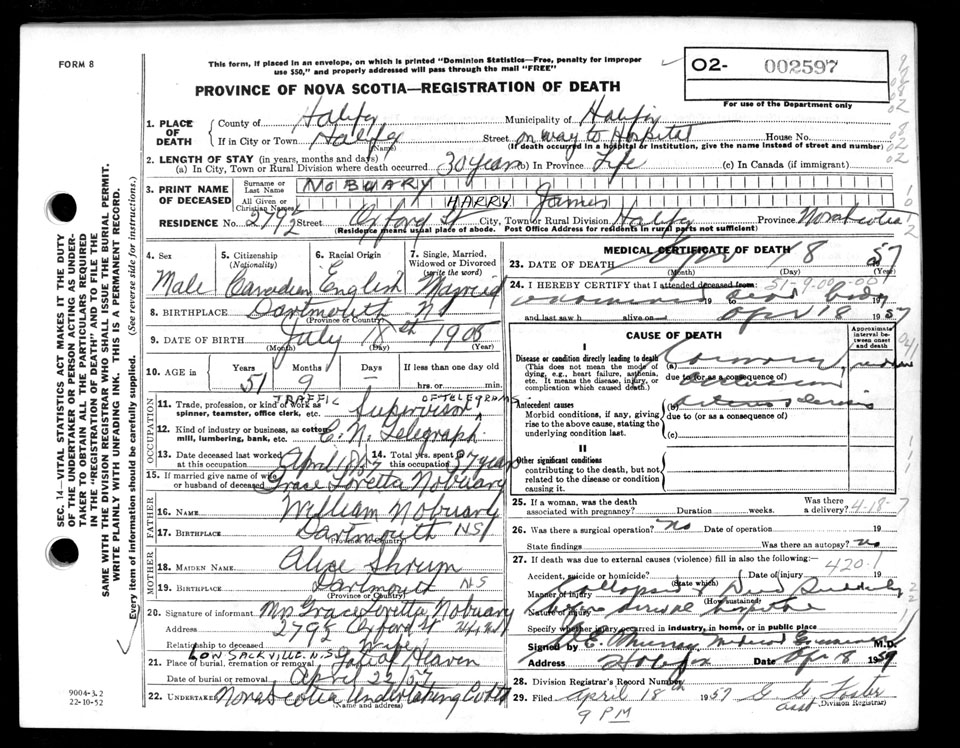 FORM 8
This form, if placed in an envelope, on which is printed "Dominion Statistics—Free, penalty for improper
use $50," and properly addressed will pass through the mail "FREE"
O2- 002597
For use of the Department only
PROVINCE OF NOVA SCOTIA—REGISTRATION OF DEATH
1. PLACE OF DEATH County of Halifax Municipality of Halifax
If in City or Town Halifax Street on way to Hospital House No.
(Name) (If death occurred in a hospital or institution, give the name instead of street and number)
2. LENGTH OF STAY (in years, months and days)
(a) In City, Town or Rural Division where death occurred 30 years (b) In Province Life (c) In Canada (if immigrant)
3. PRINT NAME OF DECEASED Surname or Last Name NOBUARY
All Given or Christian Names HARRY James
RESIDENCE No. 2792 Street Oxford St City, Town or Rural Division Halifax Province Nova Scotia
(Residence means usual place of abode. Post Office Address for residents in rural parts not sufficient)
4. Sex Male
5. Citizenship (Nationality) Canadian
6. Racial Origin English
7. Single, Married, Widowed or Divorced (write the word) Married
8. BIRTHPLACE Dartmouth NS
(Province or Country)
9. DATE OF BIRTH July 18th 1905
(Month) (Day) (Year)
10. AGE in Years 51 Months 9 Days – If less than one day old
hrs. or min.
OCCUPATION
11. Trade, profession, or kind of work as spinner, teamster, office clerk, etc. TRAFFIC Supervisor OF TELEGRAMS
12. Kind of industry or business, as cotton mill, lumbering, bank, etc. C. N. Telegraph
13. Date deceased last worked at this occupation April 18/57
14. Total yrs. spent in this occupation 37 years
15. If married give name of wife or husband of deceased Grace Loretta Nobuary
FATHER
16. NAME William Nobuary
17. BIRTHPLACE Dartmouth NS
(Province or Country)
MOTHER
18. MAIDEN NAME Alice Shrum
19. BIRTHPLACE Dartmouth NS
(Province or Country)
20. Signature of informant Mrs Grace Loretta Nobuary
Address 2792 Oxford St
Relationship to deceased Wife
LOW SACKVILLE. N.S.
21. Place of burial, cremation or removal Gate of Heaven
Date of burial or removal April 22/57
22. UNDERTAKER Nova Scotia Undertaking Co Ltd
(Name and address)
MEDICAL CERTIFICATE OF DEATH
23. DATE OF DEATH Apr 18 57
(Month) (Day) (Year)
24. I HEREBY CERTIFY that I attended deceased from:
examined 19 to dead body 19
and last saw h alive on Apr 18 1957
CAUSE OF DEATH
Approximate interval between onset and death
I
Disease or condition directly leading to death
(This does not mean the mode of dying, e.g., heart failure, asthenia, etc. It means the disease, injury, or complication which caused death.)
(a) Coronary
due to (or as a consequence of)
occlusion
Antecedent causes
Morbid conditions, if any, giving rise to the above cause, stating the underlying condition last.
(b) Arteriosclerosis
due to (or as a consequence of)
(c)
II
Other significant conditions
contributing to the death, but not related to the disease or condition causing it.
25. If a woman, was the death associated with pregnancy? Duration weeks. Was there a delivery? 4-18-7
26. Was there a surgical operation? No Date of operation 19
State findings Was there an autopsy? No
27. If death was due to external causes (violence) fill in also the following:—
Accident, suicide or homicide? Date of injury 19
(State which) 420.1
Manner of injury Collapsed & Died Suddenly
(How sustained)
Nature of injury
Specify whether injury occurred in industry, in home, or in public place
Signed by Murray Medical Examiner M.D.
Address Halifax Date Apr 18 1957
28. Division Registrar's Record Number
29. Filed April 18th 1957 G. G. Foster
9 PM asst (Division Registrar)
SEC. 14—VITAL STATISTICS ACT MAKES IT THE DUTY
OF THE UNDERTAKER OR PERSON ACTING AS UNDER-
TAKER TO OBTAIN ALL THE PARTICULARS REQUIRED
IN THE "REGISTRATION OF DEATH" AND TO FILE THE
SAME WITH THE DIVISION REGISTRAR WHO SHALL ISSUE THE BURIAL PERMIT.
WRITE PLAINLY WITH UNFADING INK. THIS IS A PERMANENT RECORD.
Every item of information should be carefully supplied. (See reverse side for instructions.)
9004-3.2
22-10-52